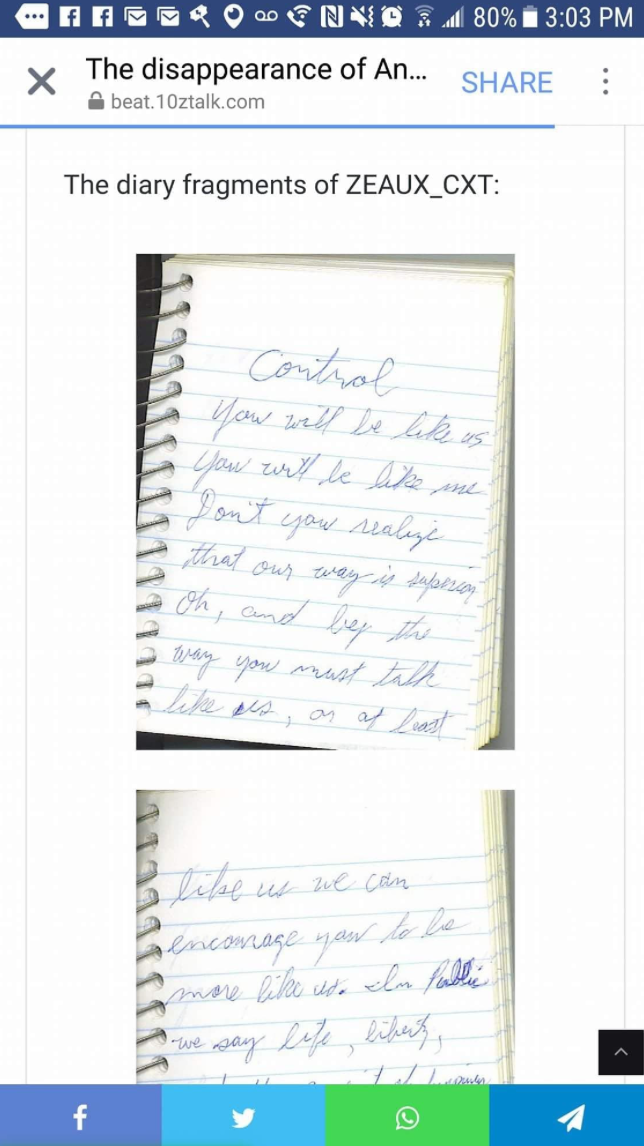 80% 3:03 PM
The disappearance of An...
SHARE
beat.10ztalk.com
The diary fragments of ZEAUX_CXT:
Control
You will be like us
You will be like me
Don't you realize
that our way is superior
Oh, and by the
way you must talk
like us, or at least
like us we can
encourage you to be
more like us. In Public
we say life, liberty,
f